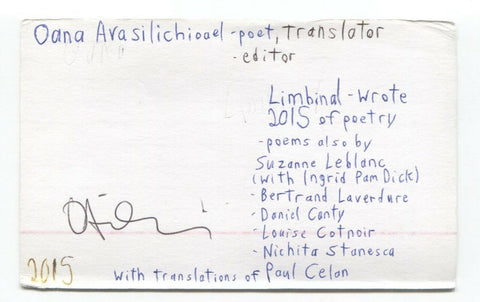 Oana Avasilichioaei -poet, translator
-editor
Limbinal - wrote
2015 of poetry
-poems also by
Suzanne Leblanc
(with Ingrid Pam Dick)
-Bertrand Laverdure
-Daniel Canty
-Louise Cotnoir
-Nichita Stanesca
2015
with translations of Paul Celan